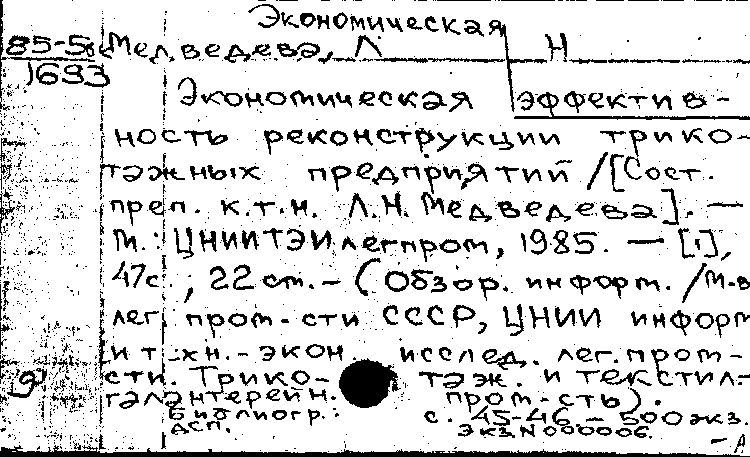 Экономическая
85-5 Медведева, Л Н
1693
Экономическая эффектив-
ность реконструкции трико-
тажных предприятий /[Сост.
преп. к.т.н. Л.Н. Медведева]. —
М.: ЦНИИТЭИлегпром, 1985. — [1],
47с., 22 см. – (Обзор. информ. / М-в
лег. пром-сти СССР, ЦНИИ информ
и т-хн.-экон. исслед. лег. пром-
сти. Трико- таж. и текстил.-
галантерейн. пром-сть).
Библиогр.: с. 45-46 – 500 экз.
ДСП. Экз. N 000006.
– А